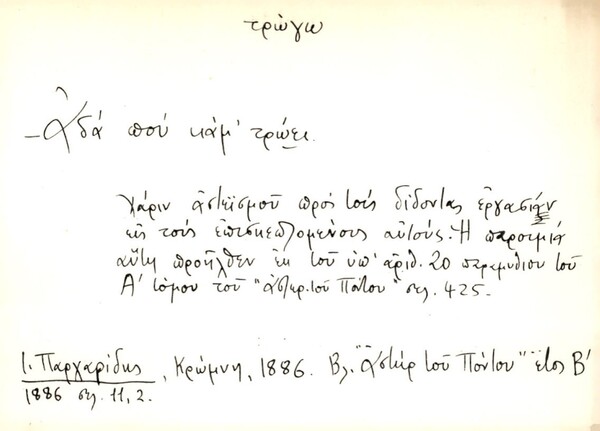 τρώγω
– Ἀδά πού κάμ' τρώει.
Χάριν ἀστεϊσμοῦ πρός τούς δίδοντας ἐργασίαν
εἰς τούς ἐπισκεπτομένους αὐτούς. Ἡ παροιμία
αὕτη προῆλθεν ἐκ τοῦ ὑπ' ἀριθ. 20 παραμυθίου τοῦ
Α' τόμου τοῦ "Ἀστήρ τοῦ Πόντου" σελ. 425.
Ι. Παρχαρίδης, Κρώμνη, 1886. Βλ. "Ἀστήρ τοῦ Πόντου" ἔτος Β'
1886 σελ. 11, 2.